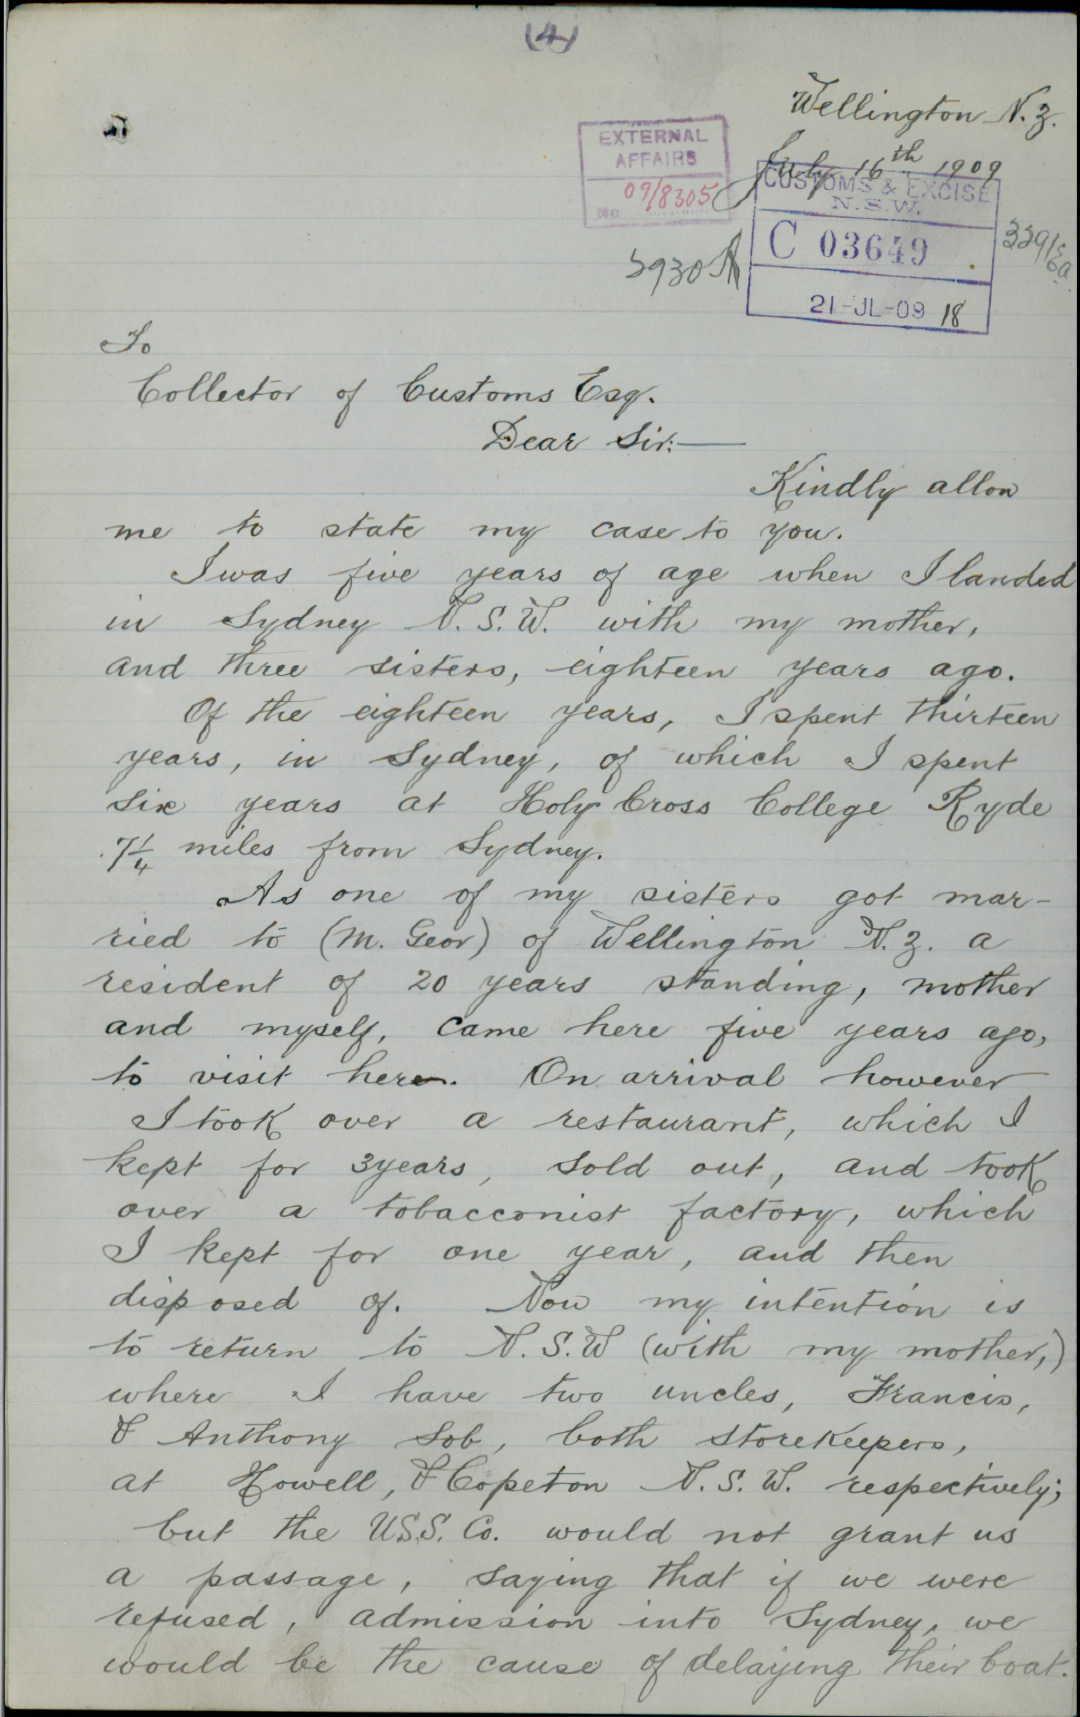 (4)
Wellington N.Z.
July 16th 1909
EXTERNAL
AFFAIRS
09/8305
CUSTOMS & EXCISE
N.S.W.
C 03649
21-JL-09 18
To
Collector of Customs Esq.
Dear Sir:—
Kindly allow
me to state my case to you.
I was five years of age when I landed
in Sydney N.S.W. with my mother,
and three sisters, eighteen years ago.
Of the eighteen years, I spent thirteen
years, in Sydney, of which I spent
six years at Holy Cross College Ryde
7¼ miles from Sydney.
As one of my sisters got mar-
ried to (M. Geor) of Wellington N.Z. a
resident of 20 years standing, mother
and myself, came here five years ago,
to visit here. On arrival however
I took over a restaurant, which I
kept for 3years, sold out, and took
over a tobacconist factory, which
I kept for one year, and then
disposed of. Now my intention is
to return to N.S.W (with my mother,)
where I have two uncles, Francis,
& Anthony Sob, both storekeepers,
at Howell, & Copeton N.S.W. respectively;
but the U.S.S. Co. would not grant us
a passage, saying that if we were
refused, admission into Sydney, we
would be the cause of delaying their boat.